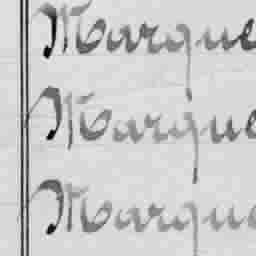 Marque
Marque
Marque